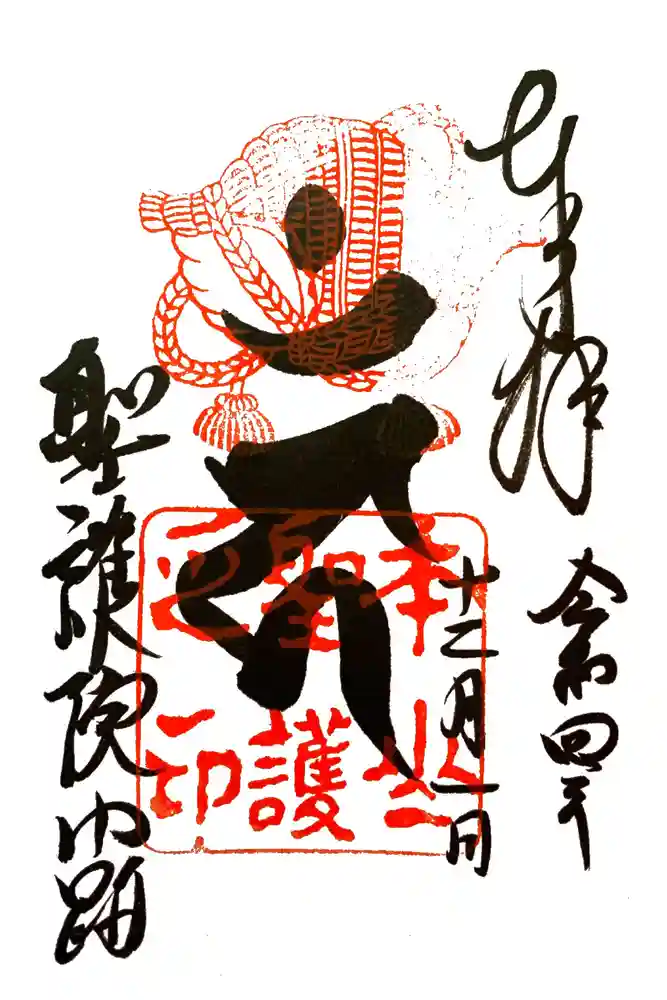 奉拝
令和四年
十二月一日
本山
聖護
之印
聖護院門跡